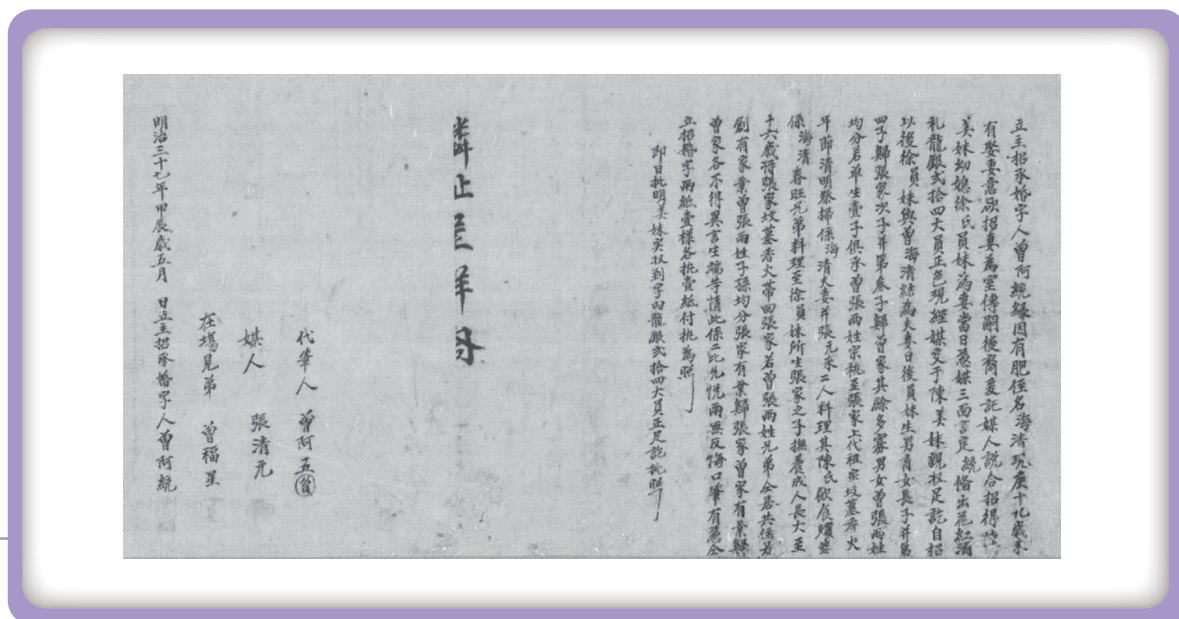 立主招承婚字人曾阿統緣因有肥侄名海清現庚十九歲未
有娶妻意欲招妻為室傳嗣後裔爰託媒人說合招得
美妹幼媳徐氏員妹為妻當日憑媒三面言定統備出花紅酒
礼龍銀弍拾四大員正色現經媒交于陳美妹親收足訖自招
以後徐員妹與曾海清結為夫妻日後員妹生男育女長子并第
四子歸張家次子并第叁子歸曾家其餘多寡男女曾張兩姓
均分若單生壹子俱承曾張兩姓宗祧至張家六代祖宗坟墓香火
年節清明祭掃係海清夫妻并張元承二人料理其陳氏飲食
係海清春旺兄弟料理至徐員妹所生張家之子撫養成人長大至
十六歲將張家坟墓香火帶回張家若曾張兩姓兄弟仝居共住若
創有家業曾張兩姓子孫均分張家有業歸張家曾家有業歸
曾家各不得異言生端等情此係二比允悅兩無反悔口筆有憑仝
立招婚字兩紙壹樣各執壹紙付執為照
即日批明美妹实收到字內龍銀弍拾四大員正足訖批照
麟止呈祥
代筆人 曾阿五
媒人 張清元
在場見弟 曾福星
明治三十七年甲辰歲五月 日立主招承婚字人曾阿統